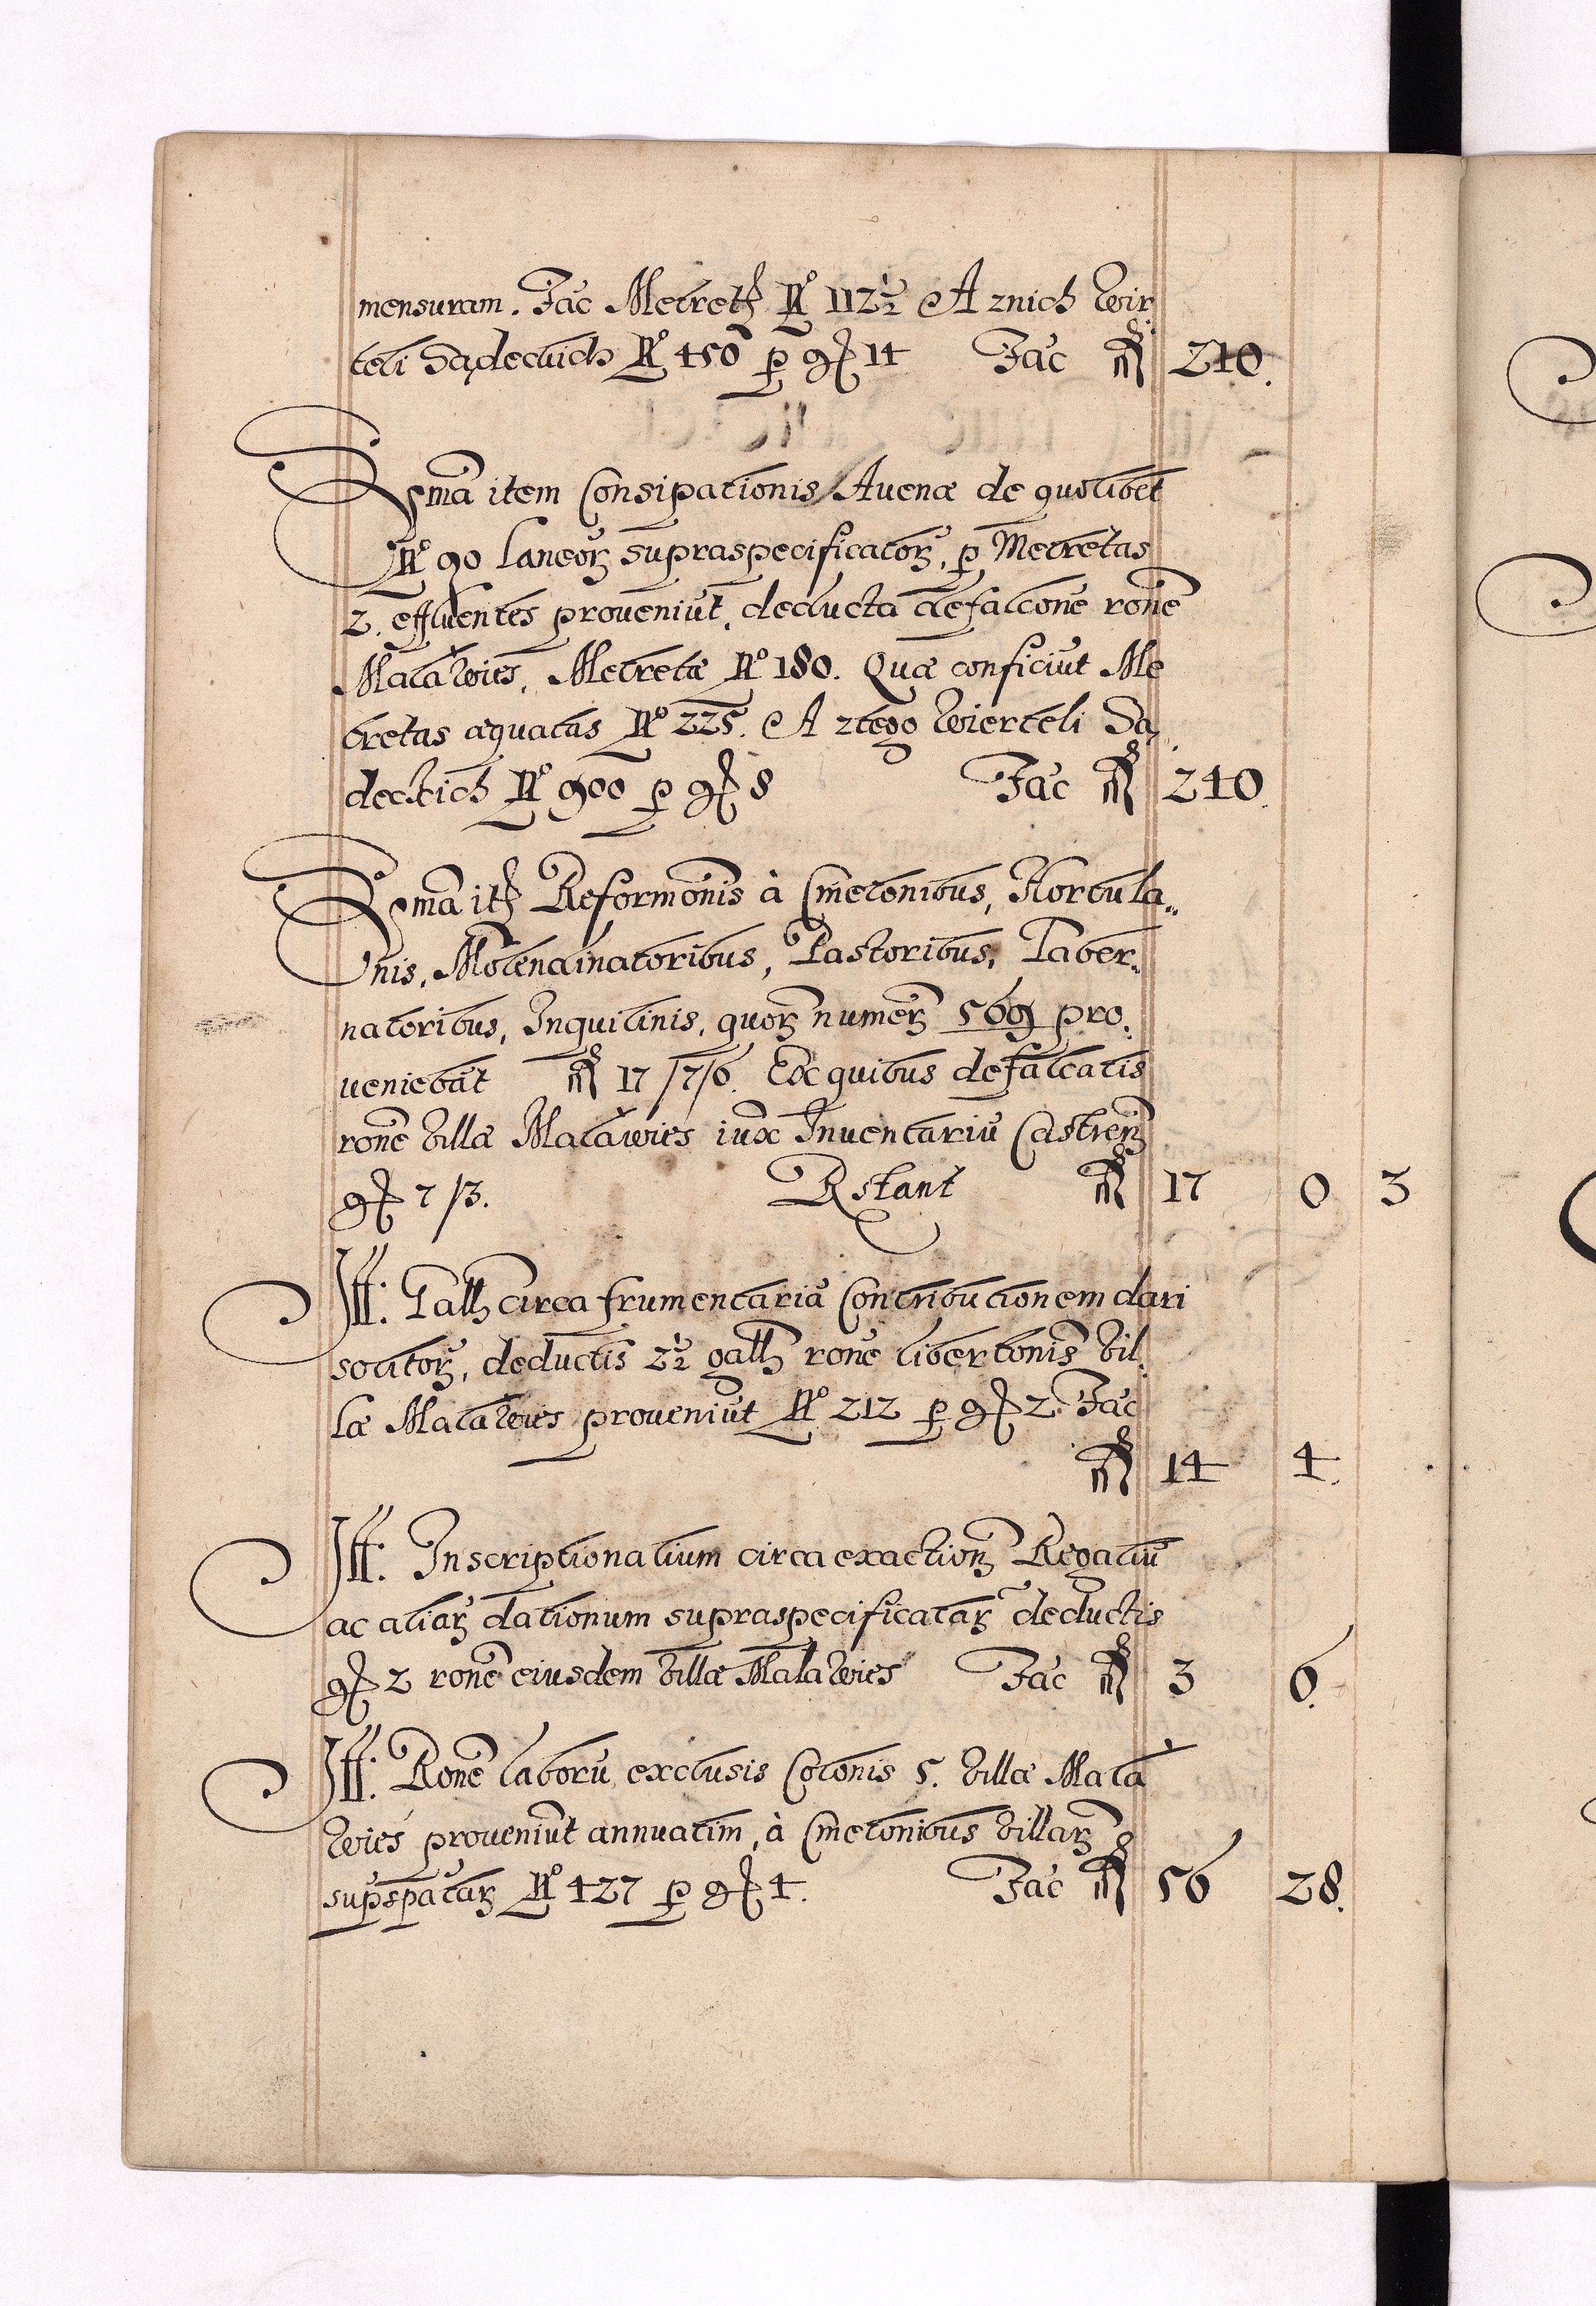 mensuram. Fac̃ Metret. N̊ 112½ A znich Wir
teli Sądeckich N̊ 450 p̃ g̃ 14 Fac̃ m̃ 210.
Sm̃a item Consipationis Auenæ de quolibet
N̊ 90 Laneoꝝ supraspecificatoꝝ, p̃ Metretas
2. effluentes proueniũt, deducta defalcõne rõne
Mala Wies, Metretæ N̊ 180. Quæ conficiũt Me
tretas æquatas N̊ 225. A z tego Wierteli Są,
deckich N̊ 900 p̃ g̃ 8 Fac̃ m̃ 240.
Sm̃a itẽ Reformõnis à Cmetonibus, Hortula„
nis, Molendinatoribus, Pastoribus, Taber„
natoribus, Inquilinis, quoꝝ numerꝰ 569 pro,
veniebãt m̃ 17/7/6. Ex quibus defalcatis
rõne Villæ Malawies iux̃ Inuentariũ Castreñ
g̃ 7/3. Rstant m̃ 17 0 3
Itt: Gall circa frumentariã Contributionem dari
solitoꝝ, deductis 2½ gall rõne libertõnis Vil,
læ Mala Wies proueniũt N̊ 212 p̃ g̃ 2. Fac̃
m̃ 14 4.
Itt: Inscriptionalium circa exactionẽ Regaliũ
ac aliaꝝ dationum supraspecificataꝝ deductis
g̃ 2 rõne eiusdem Villæ Mala Wies Fac̃ m̃ 3 6.
Itt: Rõne laborũ, exclusis Colonis 5. Villæ Mala
Wies proueniũt annuatim, à Cmetonibus Villaꝝ
supspãtaꝝ N̊ 427 p̃ g̃ 4. Fac̃ m̃ 56 28.